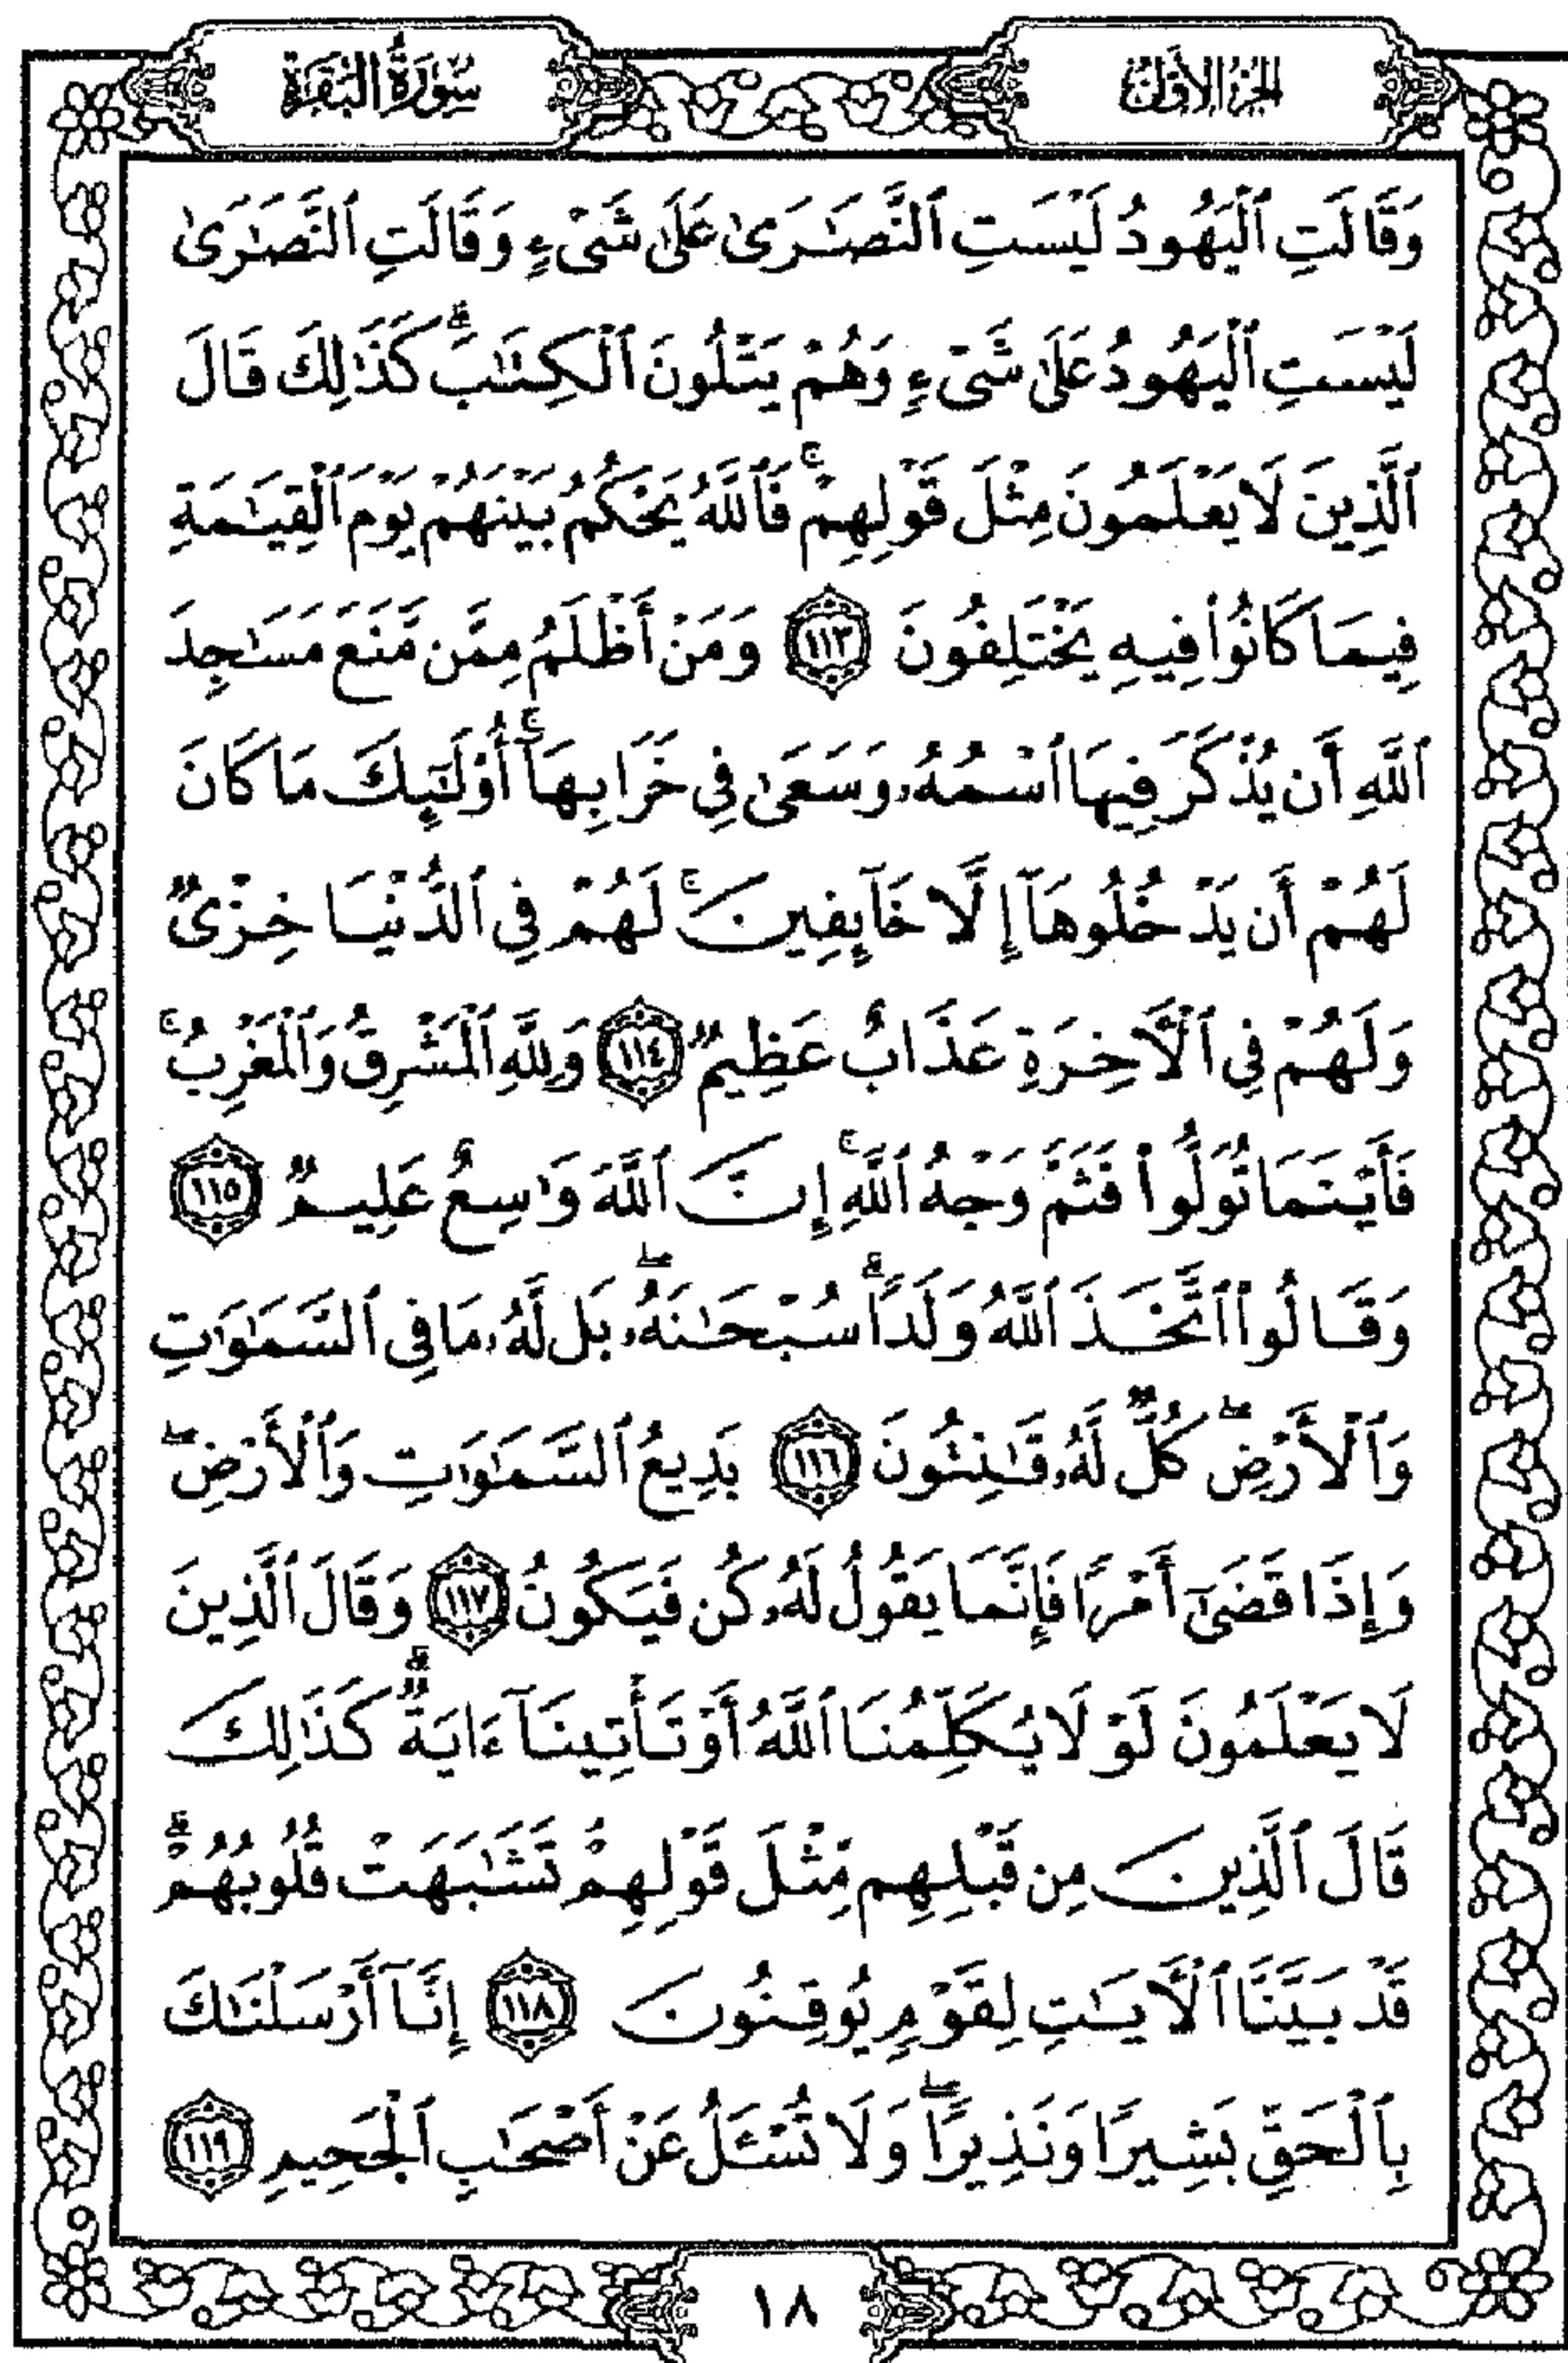 الجزء الأول
سورة البقرة
وَقَالَتِ ٱلْيَهُودُ لَيْسَتِ ٱلنَّصَٰرَىٰ عَلَىٰ شَىْءٍ وَقَالَتِ ٱلنَّصَٰرَىٰ
لَيْسَتِ ٱلْيَهُودُ عَلَىٰ شَىْءٍ وَهُمْ يَتْلُونَ ٱلْكِتَٰبَ ۗ كَذَٰلِكَ قَالَ
ٱلَّذِينَ لَا يَعْلَمُونَ مِثْلَ قَوْلِهِمْ ۚ فَٱللَّهُ يَحْكُمُ بَيْنَهُمْ يَوْمَ ٱلْقِيَٰمَةِ
فِيمَا كَانُوا۟ فِيهِ يَخْتَلِفُونَ ١١٣ وَمَنْ أَظْلَمُ مِمَّن مَّنَعَ مَسَٰجِدَ
ٱللَّهِ أَن يُذْكَرَ فِيهَا ٱسْمُهُۥ وَسَعَىٰ فِى خَرَابِهَآ ۚ أُو۟لَٰٓئِكَ مَا كَانَ
لَهُمْ أَن يَدْخُلُوهَآ إِلَّا خَآئِفِينَ ۚ لَهُمْ فِى ٱلدُّنْيَا خِزْىٌ
وَلَهُمْ فِى ٱلْـَٔاخِرَةِ عَذَابٌ عَظِيمٌ ١١٤ وَلِلَّهِ ٱلْمَشْرِقُ وَٱلْمَغْرِبُ ۚ
فَأَيْنَمَا تُوَلُّوا۟ فَثَمَّ وَجْهُ ٱللَّهِ ۚ إِنَّ ٱللَّهَ وَٰسِعٌ عَلِيمٌ ١١٥
وَقَالُوا۟ ٱتَّخَذَ ٱللَّهُ وَلَدًا ۗ سُبْحَٰنَهُۥ ۖ بَل لَّهُۥ مَا فِى ٱلسَّمَٰوَٰتِ
وَٱلْأَرْضِ ۖ كُلٌّ لَّهُۥ قَٰنِتُونَ ١١٦ بَدِيعُ ٱلسَّمَٰوَٰتِ وَٱلْأَرْضِ ۖ
وَإِذَا قَضَىٰٓ أَمْرًا فَإِنَّمَا يَقُولُ لَهُۥ كُن فَيَكُونُ ١١٧ وَقَالَ ٱلَّذِينَ
لَا يَعْلَمُونَ لَوْلَا يُكَلِّمُنَا ٱللَّهُ أَوْ تَأْتِينَآ ءَايَةٌ ۗ كَذَٰلِكَ
قَالَ ٱلَّذِينَ مِن قَبْلِهِم مِّثْلَ قَوْلِهِمْ ۘ تَشَٰبَهَتْ قُلُوبُهُمْ ۗ
قَدْ بَيَّنَّا ٱلْـَٔايَٰتِ لِقَوْمٍ يُوقِنُونَ ١١٨ إِنَّآ أَرْسَلْنَٰكَ
بِٱلْحَقِّ بَشِيرًا وَنَذِيرًا ۖ وَلَا تُسْـَٔلُ عَنْ أَصْحَٰبِ ٱلْجَحِيمِ ١١٩
١٨